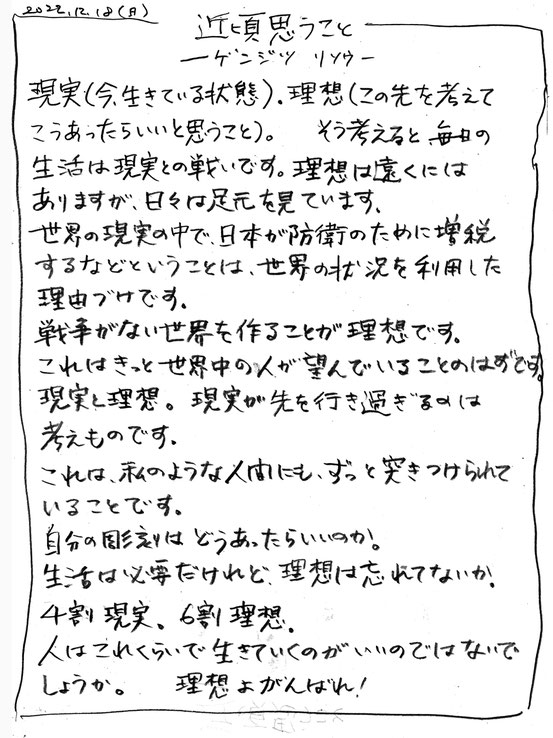 2022.12.18(月)
近頃思うこと
―ゲンジツ リソウ―
現実(今、生きている状態)。理想(この先を考えて
こうあったらいいと思うこと)。 そう考えると毎日の
生活は現実との戦いです。理想は遠くには
ありますが、日々は足元を見ています。
世界の現実の中で、日本が防衛のために増税
するなどということは、世界の状況を利用した
理由づけです。
戦争がない世界を作ることが理想です。
これはきっと世界中の人が望んでいることのはずです。
現実と理想。現実が先を行き過ぎるのは
考えものです。
これは、私のような人間にも、ずっと突きつけられて
いることです。
自分の彫刻はどうあったらいいのか。
生活は必要だけれど、理想は忘れてないか。
4割現実。6割理想。
人はこれくらいで生きていくのがいいのではないで
しょうか。 理想よがんばれ!